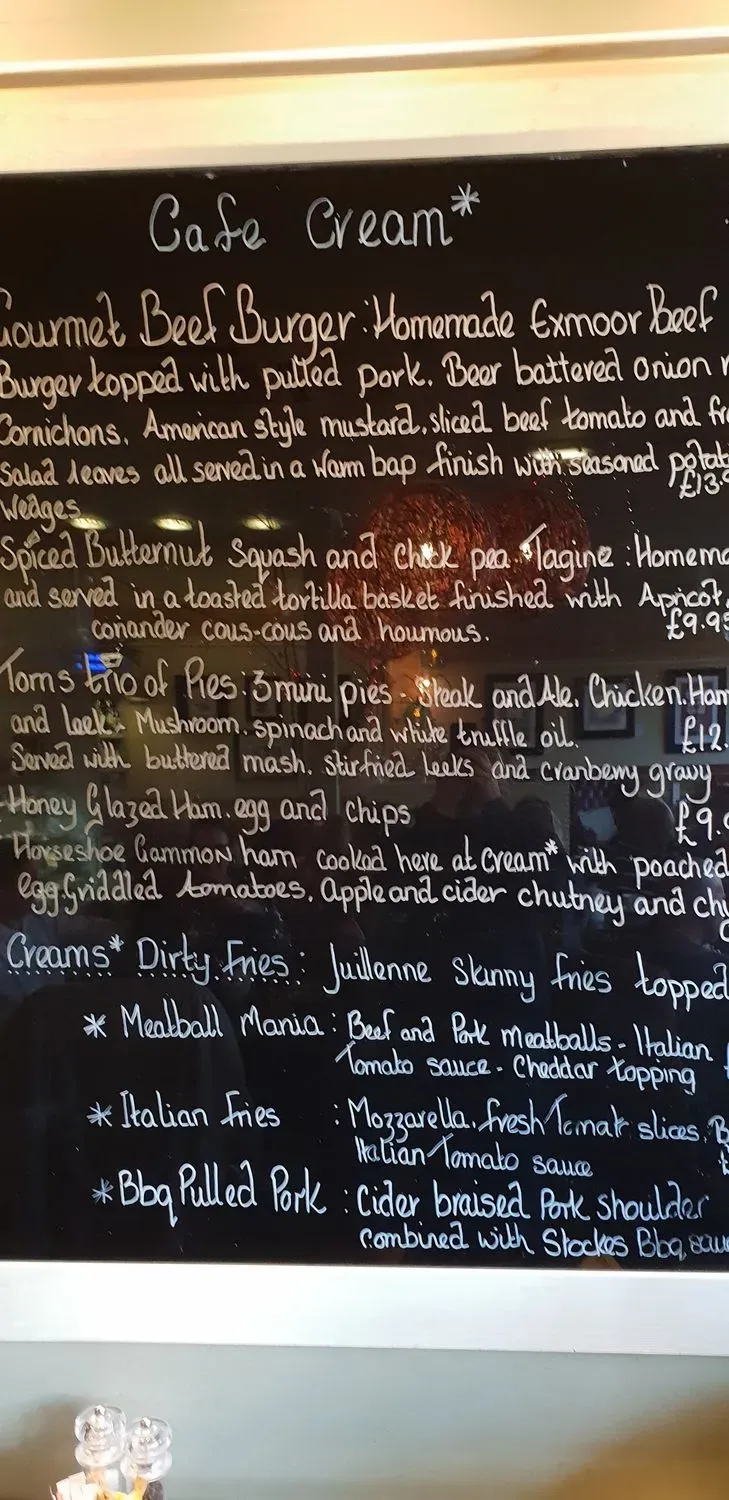 Cafe Cream*
Gourmet Beef Burger: Homemade Exmoor Beef
Burger topped with pulled pork. Beer battered onion
Cornichons. American style mustard, sliced beef tomato and
Salad leaves all served in a warm bap finish with seasoned
£13.
Wedges
Spiced Butternut Squash and Chick pea Tagine: Homema
and served in a toasted tortilla basket finished with Apricot,
coriander cous-cous and houmous. £9.95
Toms trio of Pies: 3 mini pies - Steak and Ale. Chicken. Ham
and leek - Mushroom. spinach and white truffle oil. £12.
Served with buttered mash. stirfried leeks and cranberry gravy
Honey Glazed Ham. egg and chips £9.
Horseshoe Gammon ham cooked here at Cream* with poached
egg. Griddled tomatoes. Apple and cider chutney and
Creams* Dirty Fries: Juillenne Skinny fries topped
* Meatball Mania: Beef and Pork meatballs - Italian
Tomato sauce - Cheddar topping
* Italian Fries : Mozzarella. fresh Tomato slices,
Italian Tomato sauce
* Bbq Pulled Pork : Cider braised Pork shoulder
combined with Stockes Bbq